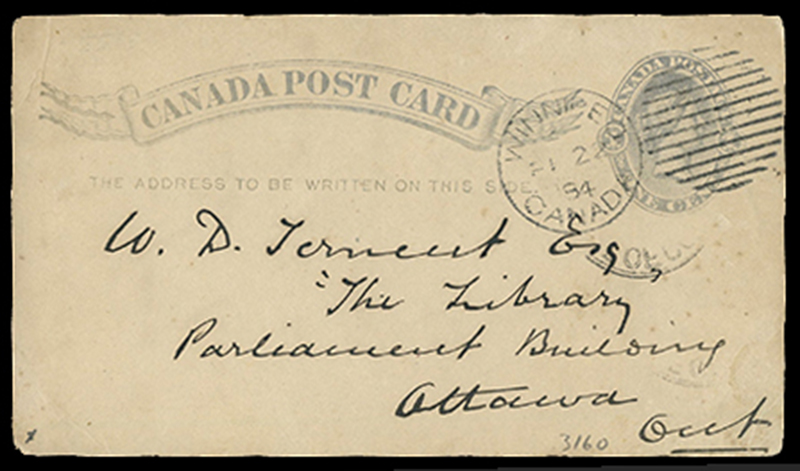 CANADA POST CARD
CANADA POST
THE ADDRESS TO BE WRITTEN ON THIS SIDE.
WINNIPEG
21
84
CANADA
W. D. Terneent Esq,
"The Library
Parliament Building
Ottawa
Ont
3160